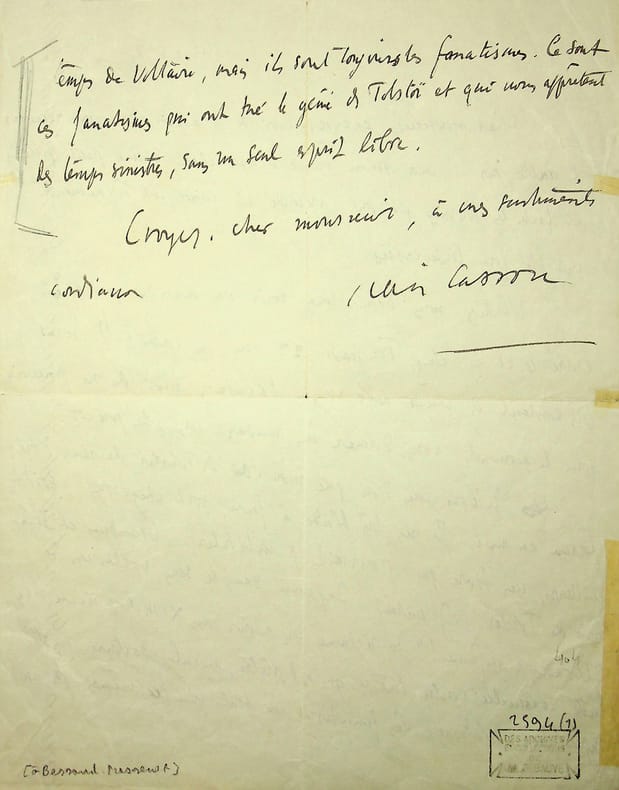 temps de Voltaire, mais ils sont toujours les fanatismes. Ce sont
ces fanatismes qui ont tué le génie de Tolstoï et qui nous apprêtent
des temps sinistres, sans un seul esprit libre.
Croyez, cher monsieur, à mes sentiments
cordiaux
Jean Cassou
404
2594 (1)
DES ARCHIVES